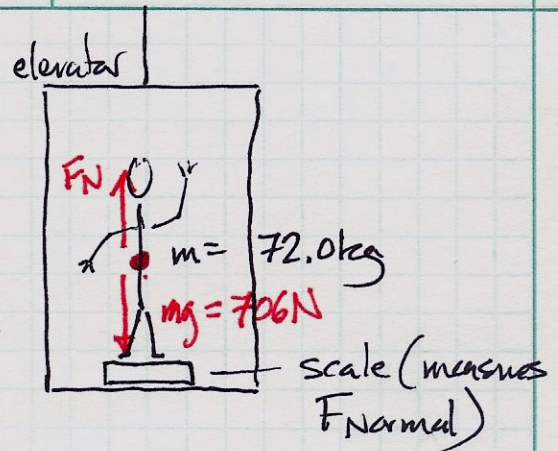 elevator
FN
m= 72.0kg
mg = 706N
scale (measures
FNormal)